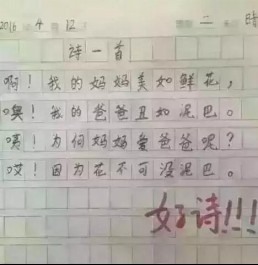 2016 4 12 二 时
诗一首
啊！我的妈妈美如鲜花，
噢！我的爸爸丑如泥巴。
咦！为何妈妈爱爸爸呢？
哎！因为花不可没泥巴。
好诗!!!